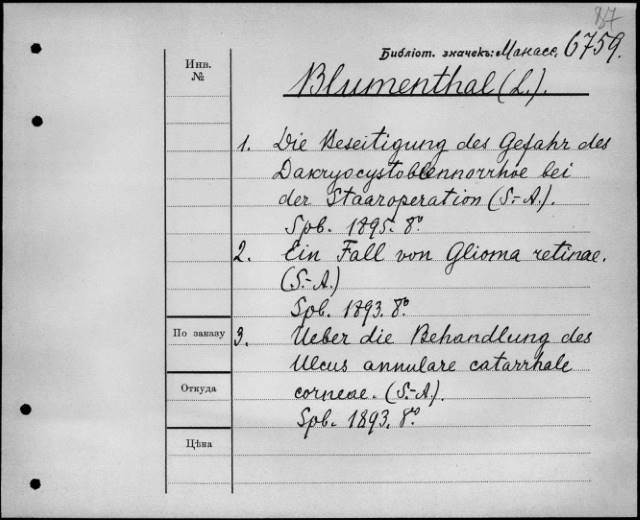 87
Библіот. значекъ: Манасс. 6759.
Инв.
№
Blumenthal (L.).
1. Die Beseitigung des Gefahr des
Dakryocystoblennorrhoe bei
der Staaroperation (S.-A.).
Spb. 1895. 8°
2. Ein Fall von Glioma retinae.
(S.-A.)
Spb. 1893. 8°
По заказу
3. Ueber die Behandlung des
Ulcus annulare catarrhale
corneae. (S.-A.).
Откуда
Spb. 1893. 8°
Цѣна